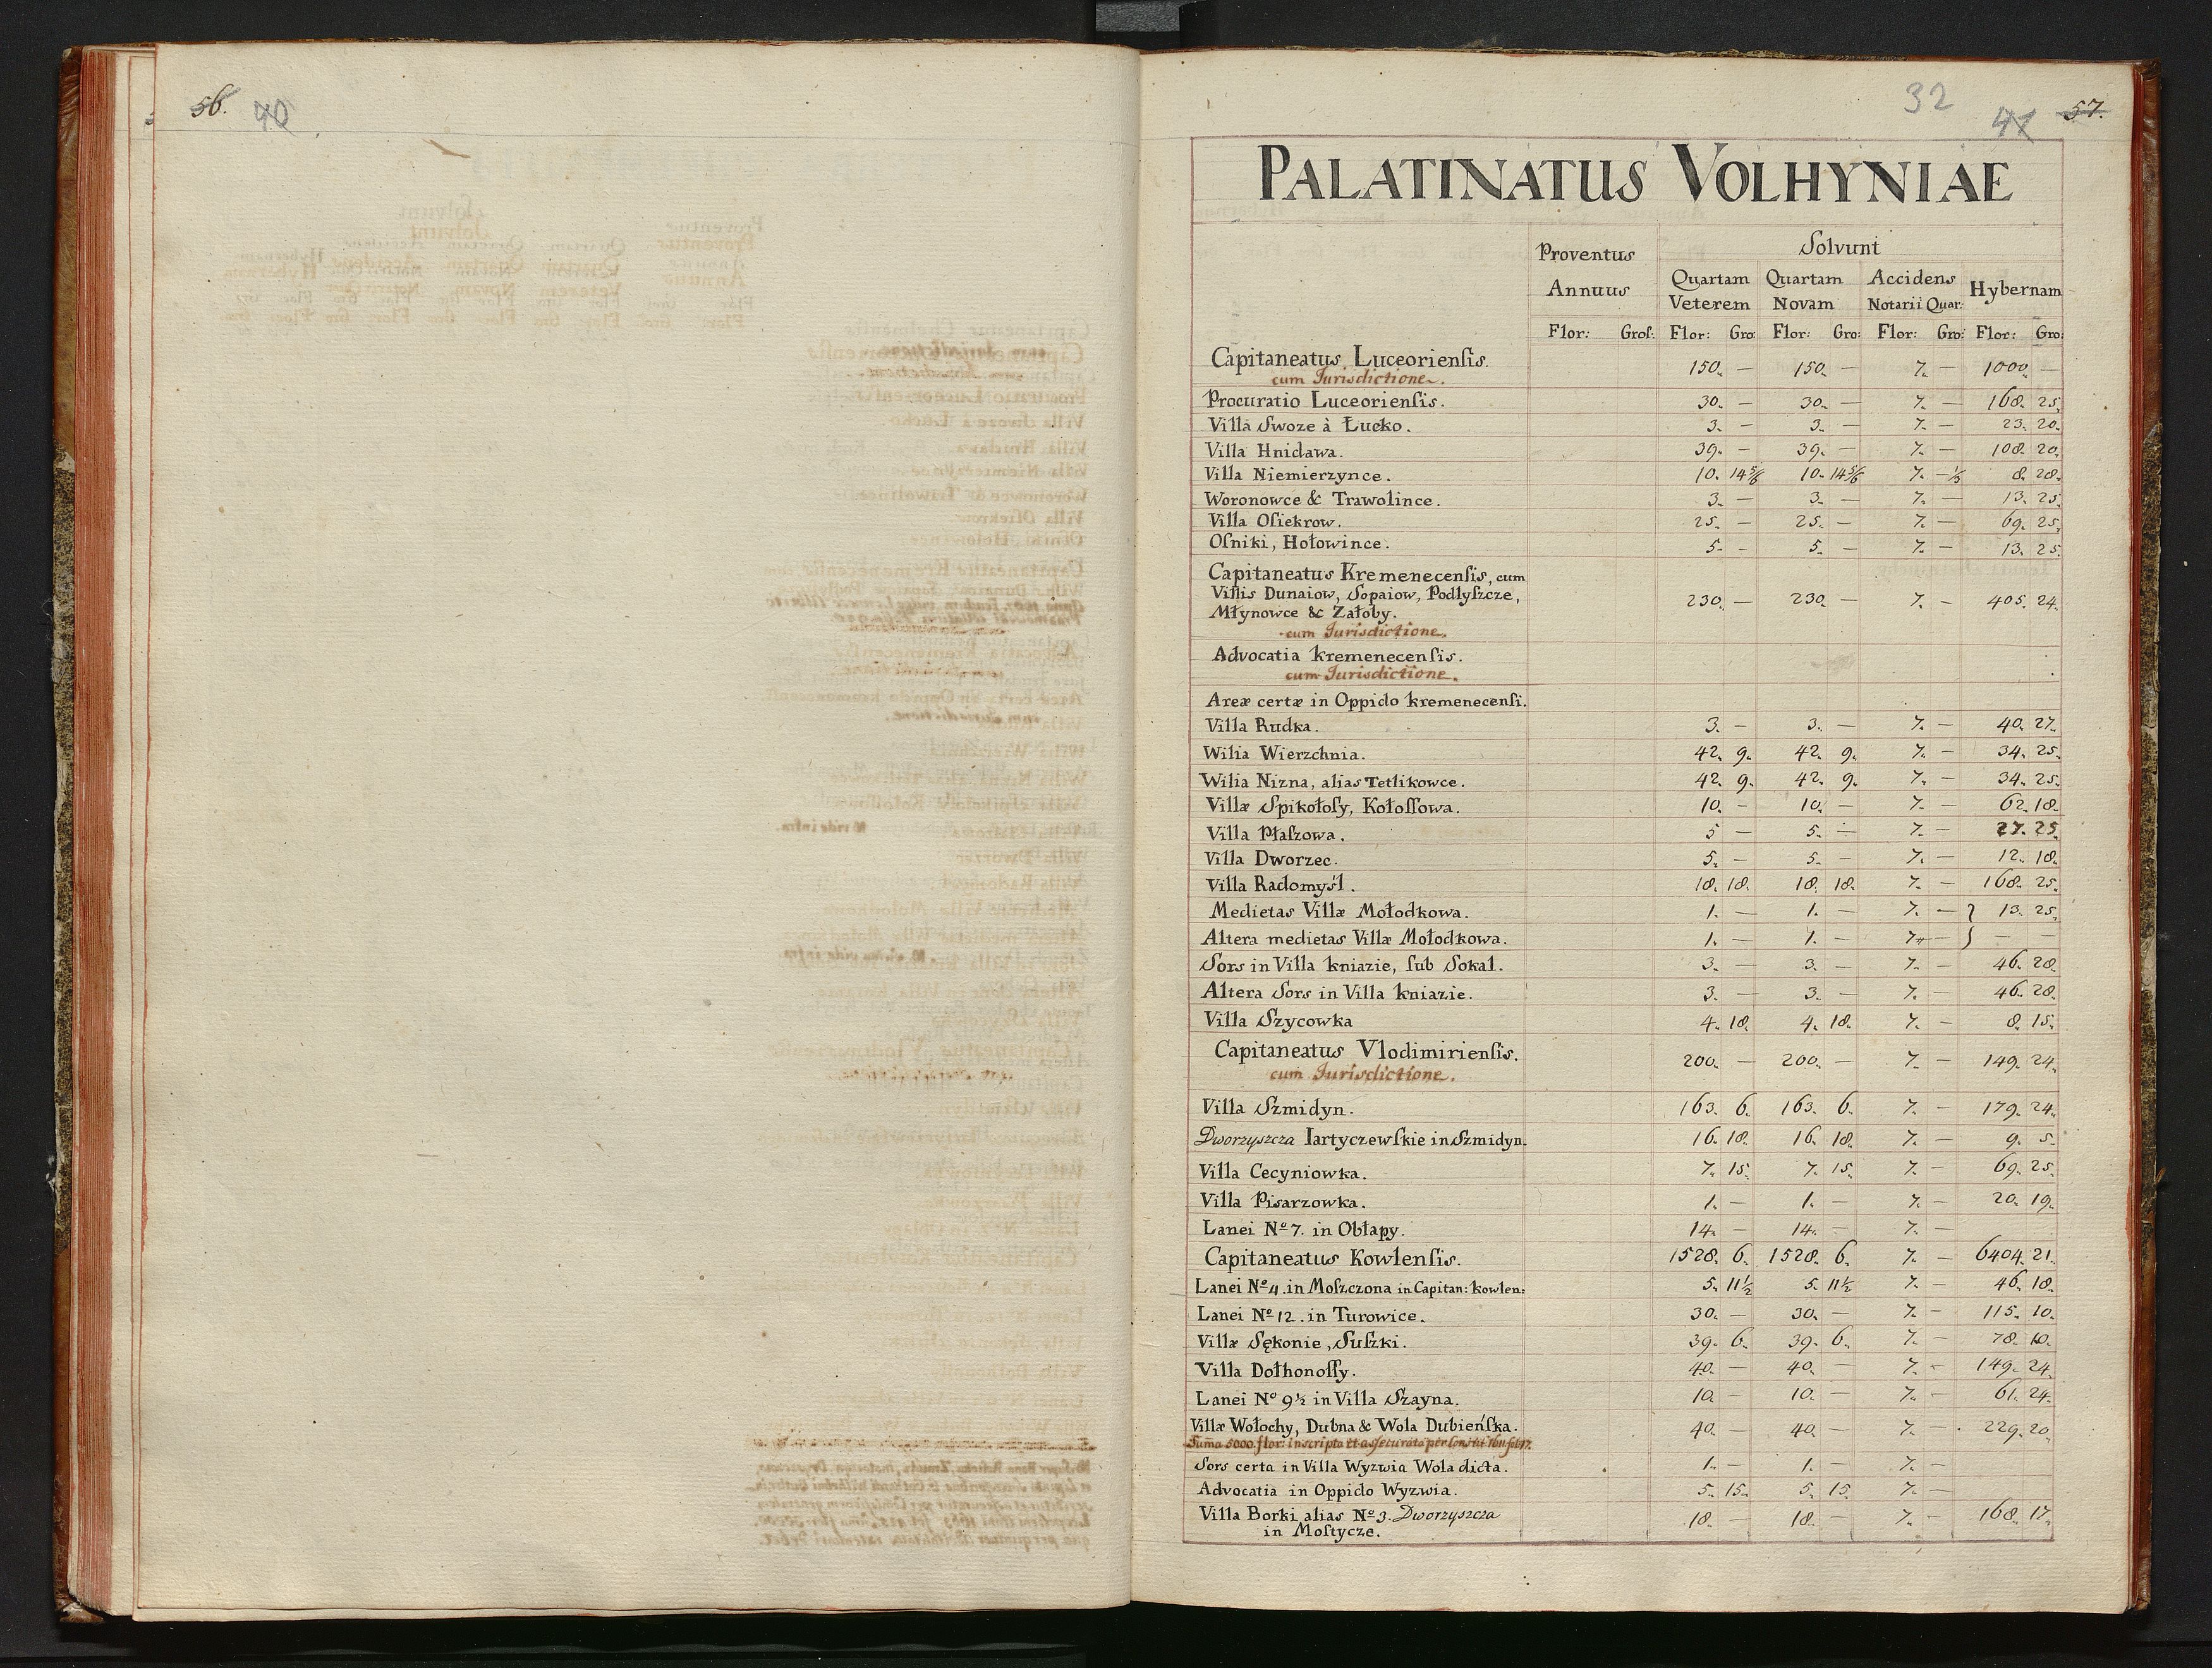 56. 40
32
41 57.
PALATINATUS VOLHYNIAE
Proventus Annuus
Solvunt
Quartam Veterem Quartam Novam Accidens Notarii Quar: Hybernam
Flor: Groſ: Flor: Gro: Flor: Gro: Flor: Gro: Flor: Gro:
Capitaneatus Luceorienſis. 150. — 150. — 7. — 1000. —
cum Jurisdictione.
Procuratio Luceorienſis. 30. — 30. — 7. — 168. 25.
Villa Swoze à Łucko. 3. — 3. — 7. — 23. 20.
Villa Hnidawa. 39. — 39. — 7. — 108. 20.
Villa Niemierzynce. 10. 14 5/6 10. 14 5/6 7. — 1/3 8. 28.
Woronowce & Trawolince. 3. — 3. — 7. — 13. 25.
Villa Oſiekrow. 25. — 25. — 7. — 69. 25.
Oſniki, Hołowince. 5. — 5. — 7. — 13. 25.
Capitaneatus Kremenecenſis, cum
Villis Dunaiow, Sopaiow, Podlyſzcze, 230. — 230. — 7. — 405. 24.
Młynowce & Załoby.
cum Jurisdictione.
Advocatia kremenecenſis.
cum Jurisdictione.
Areæ certæ in Oppido kremenecenſi.
Villa Rudka. 3. — 3. — 7. — 40. 27.
Wilia Wierzchnia. 42. 9. 42. 9. 7. — 34. 25.
Wilia Nizna, alias Tetlikowce. 42. 9. 42. 9. 7. — 34. 25.
Villæ Spikołoſy, Kołoſſowa. 10. — 10. — 7. — 62. 18.
Villa Płaſzowa. 5 — 5. — 7. — 27. 25.
Villa Dworzec. 5. — 5. — 7. — 12. 18.
Villa Radomyśl. 18. 18. 18. 18. 7. — 168. 25.
Medietas Villæ Mołodkowa. 1. — 1. — 7. — } 13. 25.
Altera medietas Villæ Mołodkowa. 1. — 1. — 7. — } — —
Sors in Villa kniazie, ſub Sokal. 3. — 3. — 7. — 46. 28.
Altera Sors in Villa kniazie. 3. — 3. — 7. — 46. 28.
Villa Szycowka 4. 18. 4. 18. 7. — 8. 15.
Capitaneatus Vlodimirienſis. 200. — 200. — 7. — 149. 24.
cum Jurisdictione.
Villa Szmidyn. 163. 6. 163. 6. 7. — 179. 24.
Dworzyszcza Iartyczewſkie in Szmidyn. 16. 18. 16. 18. 7. — 9. 5.
Villa Cecyniowka. 7. 15. 7. 15. 7. — 69. 25.
Villa Pisarzowka. 1. — 1. — 7. — 20. 19.
Lanei Nº 7. in Obłapy. 14. — 14. — 7. —
Capitaneatus Kowlenſis. 1528. 6. 1528. 6. 7. — 6404. 21.
Lanei Nº 4. in Moſzczona in Capitan: kowlen: 5. 11½ 5. 11½ 7. — 46. 18.
Lanei Nº 12. in Turowice. 30. — 30. — 7. — 115. 10.
Villæ Sękonie, Suſzki. 39. 6. 39. 6. 7. — 78. 10.
Villa Dołhonoſſy. 40. — 40. — 7. — 149. 24.
Lanei Nº 9½ in Villa Szayna. 10. — 10. — 7. — 61. 24.
Villæ Wołochy, Dubna & Wola Dubieńſka. 40. — 40. — 7. — 229. 20.
Suma 5000. flor: inscripta et assecurata per Constit 1611 fol:17.
Sors certa in Villa Wyzwia Wola dicta. 1. — 1. — 7. —
Advocatia in Oppido Wyzwia. 5. 15. 5. 15. 7. —
Villa Borki alias Nº 3. Dworzyszcza 18. — 18. — 7. — 168. 17.
in Moſtycze.